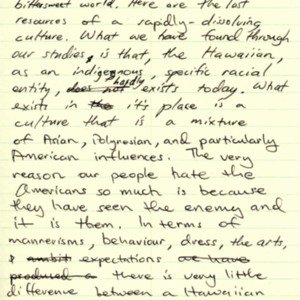 bittersweet world. Here are the last
resources of a rapidly-dissolving
culture. What we have found through
our studies, is that, the Hawaiian,
as an indigenous, specific racial
entity, does not hardly exists today. What
exists in the it's place is a
culture that is a mixture
of Asian, Polynesian, and particularly
American influences. The very
reason our people hate the
Americans so much is because
they have seen the enemy and
it is them. In terms of
mannerisms, behaviour, dress, the arts,
& ambit expectations we have
produced a there is very little
difference between a Hawaiian